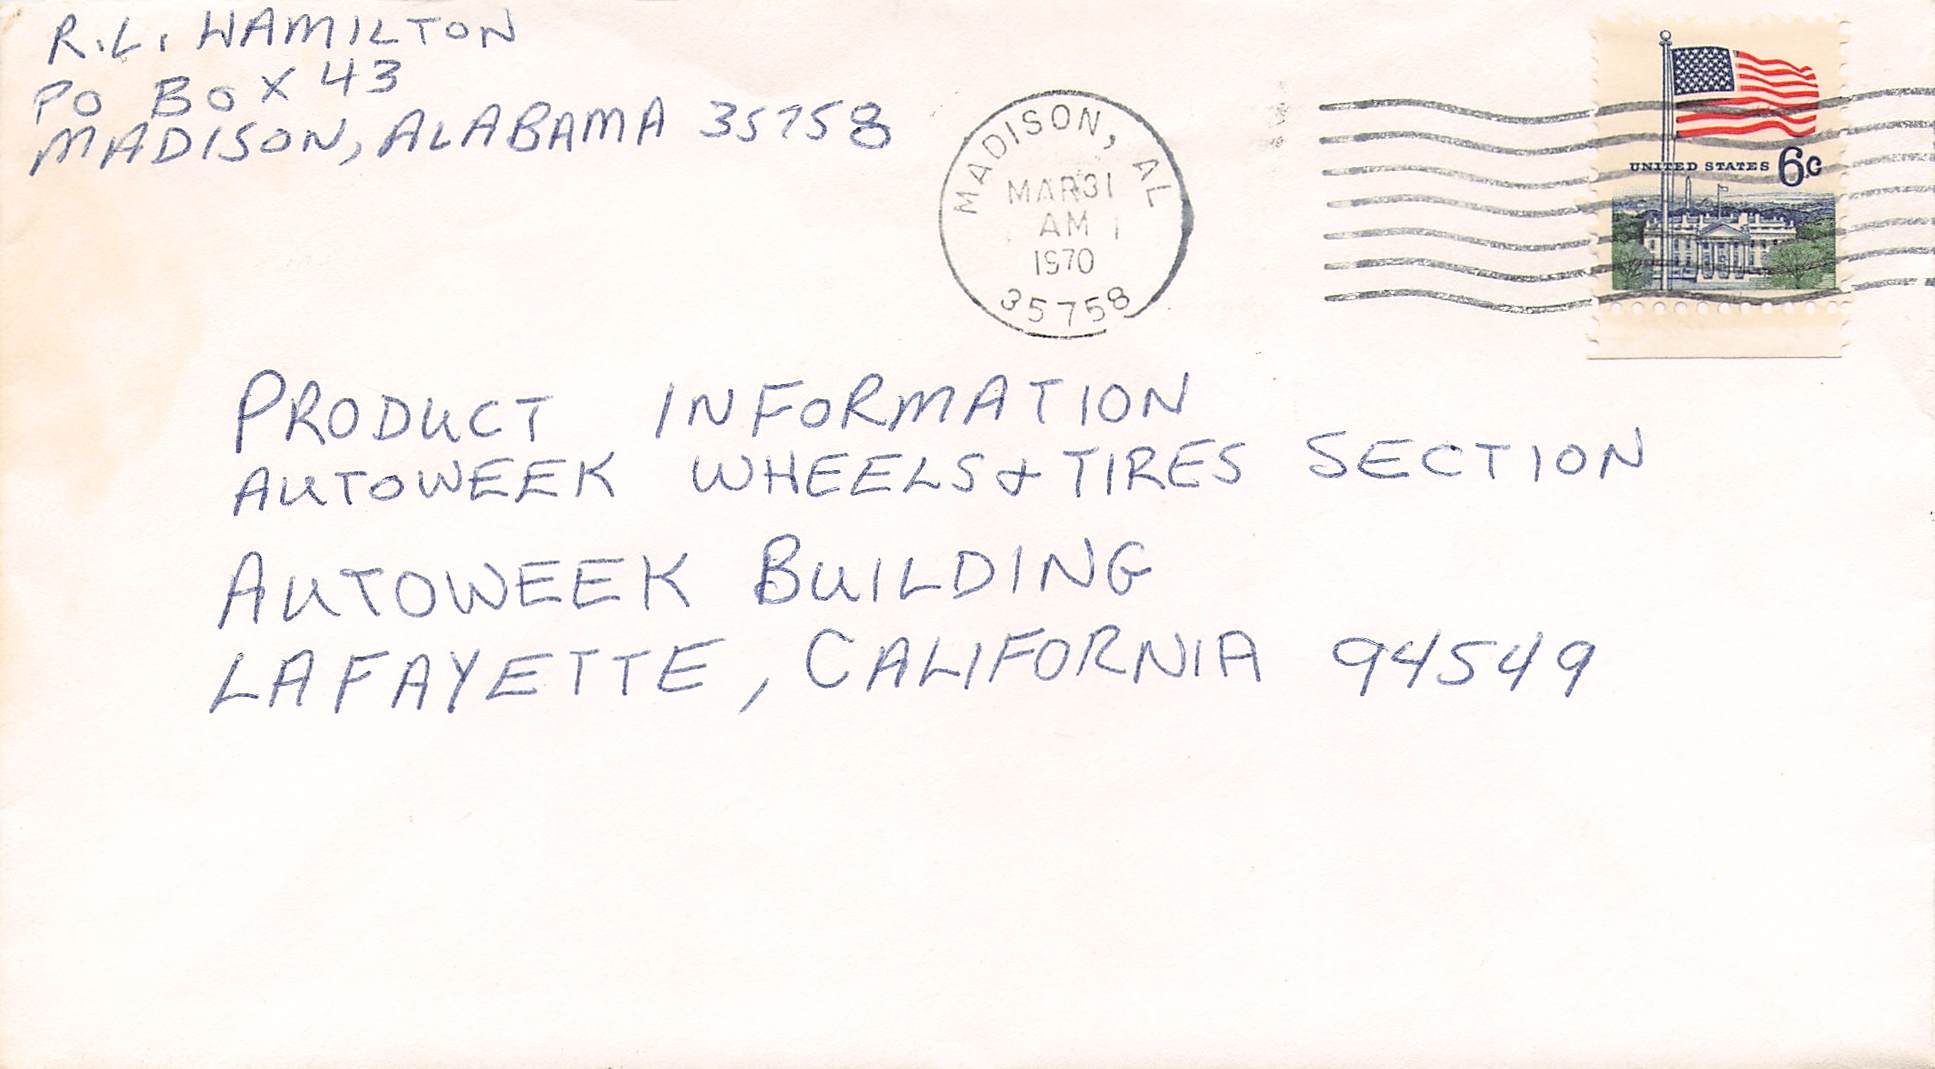 R.L. HAMILTON
PO BOX 43
MADISON, ALABAMA 35758
MADISON, AL
MAR 31
AM
1970
35758
UNITED STATES 6c
PRODUCT INFORMATION
AUTOWEEK WHEELS & TIRES SECTION
AUTOWEEK BUILDING
LAFAYETTE, CALIFORNIA 94549